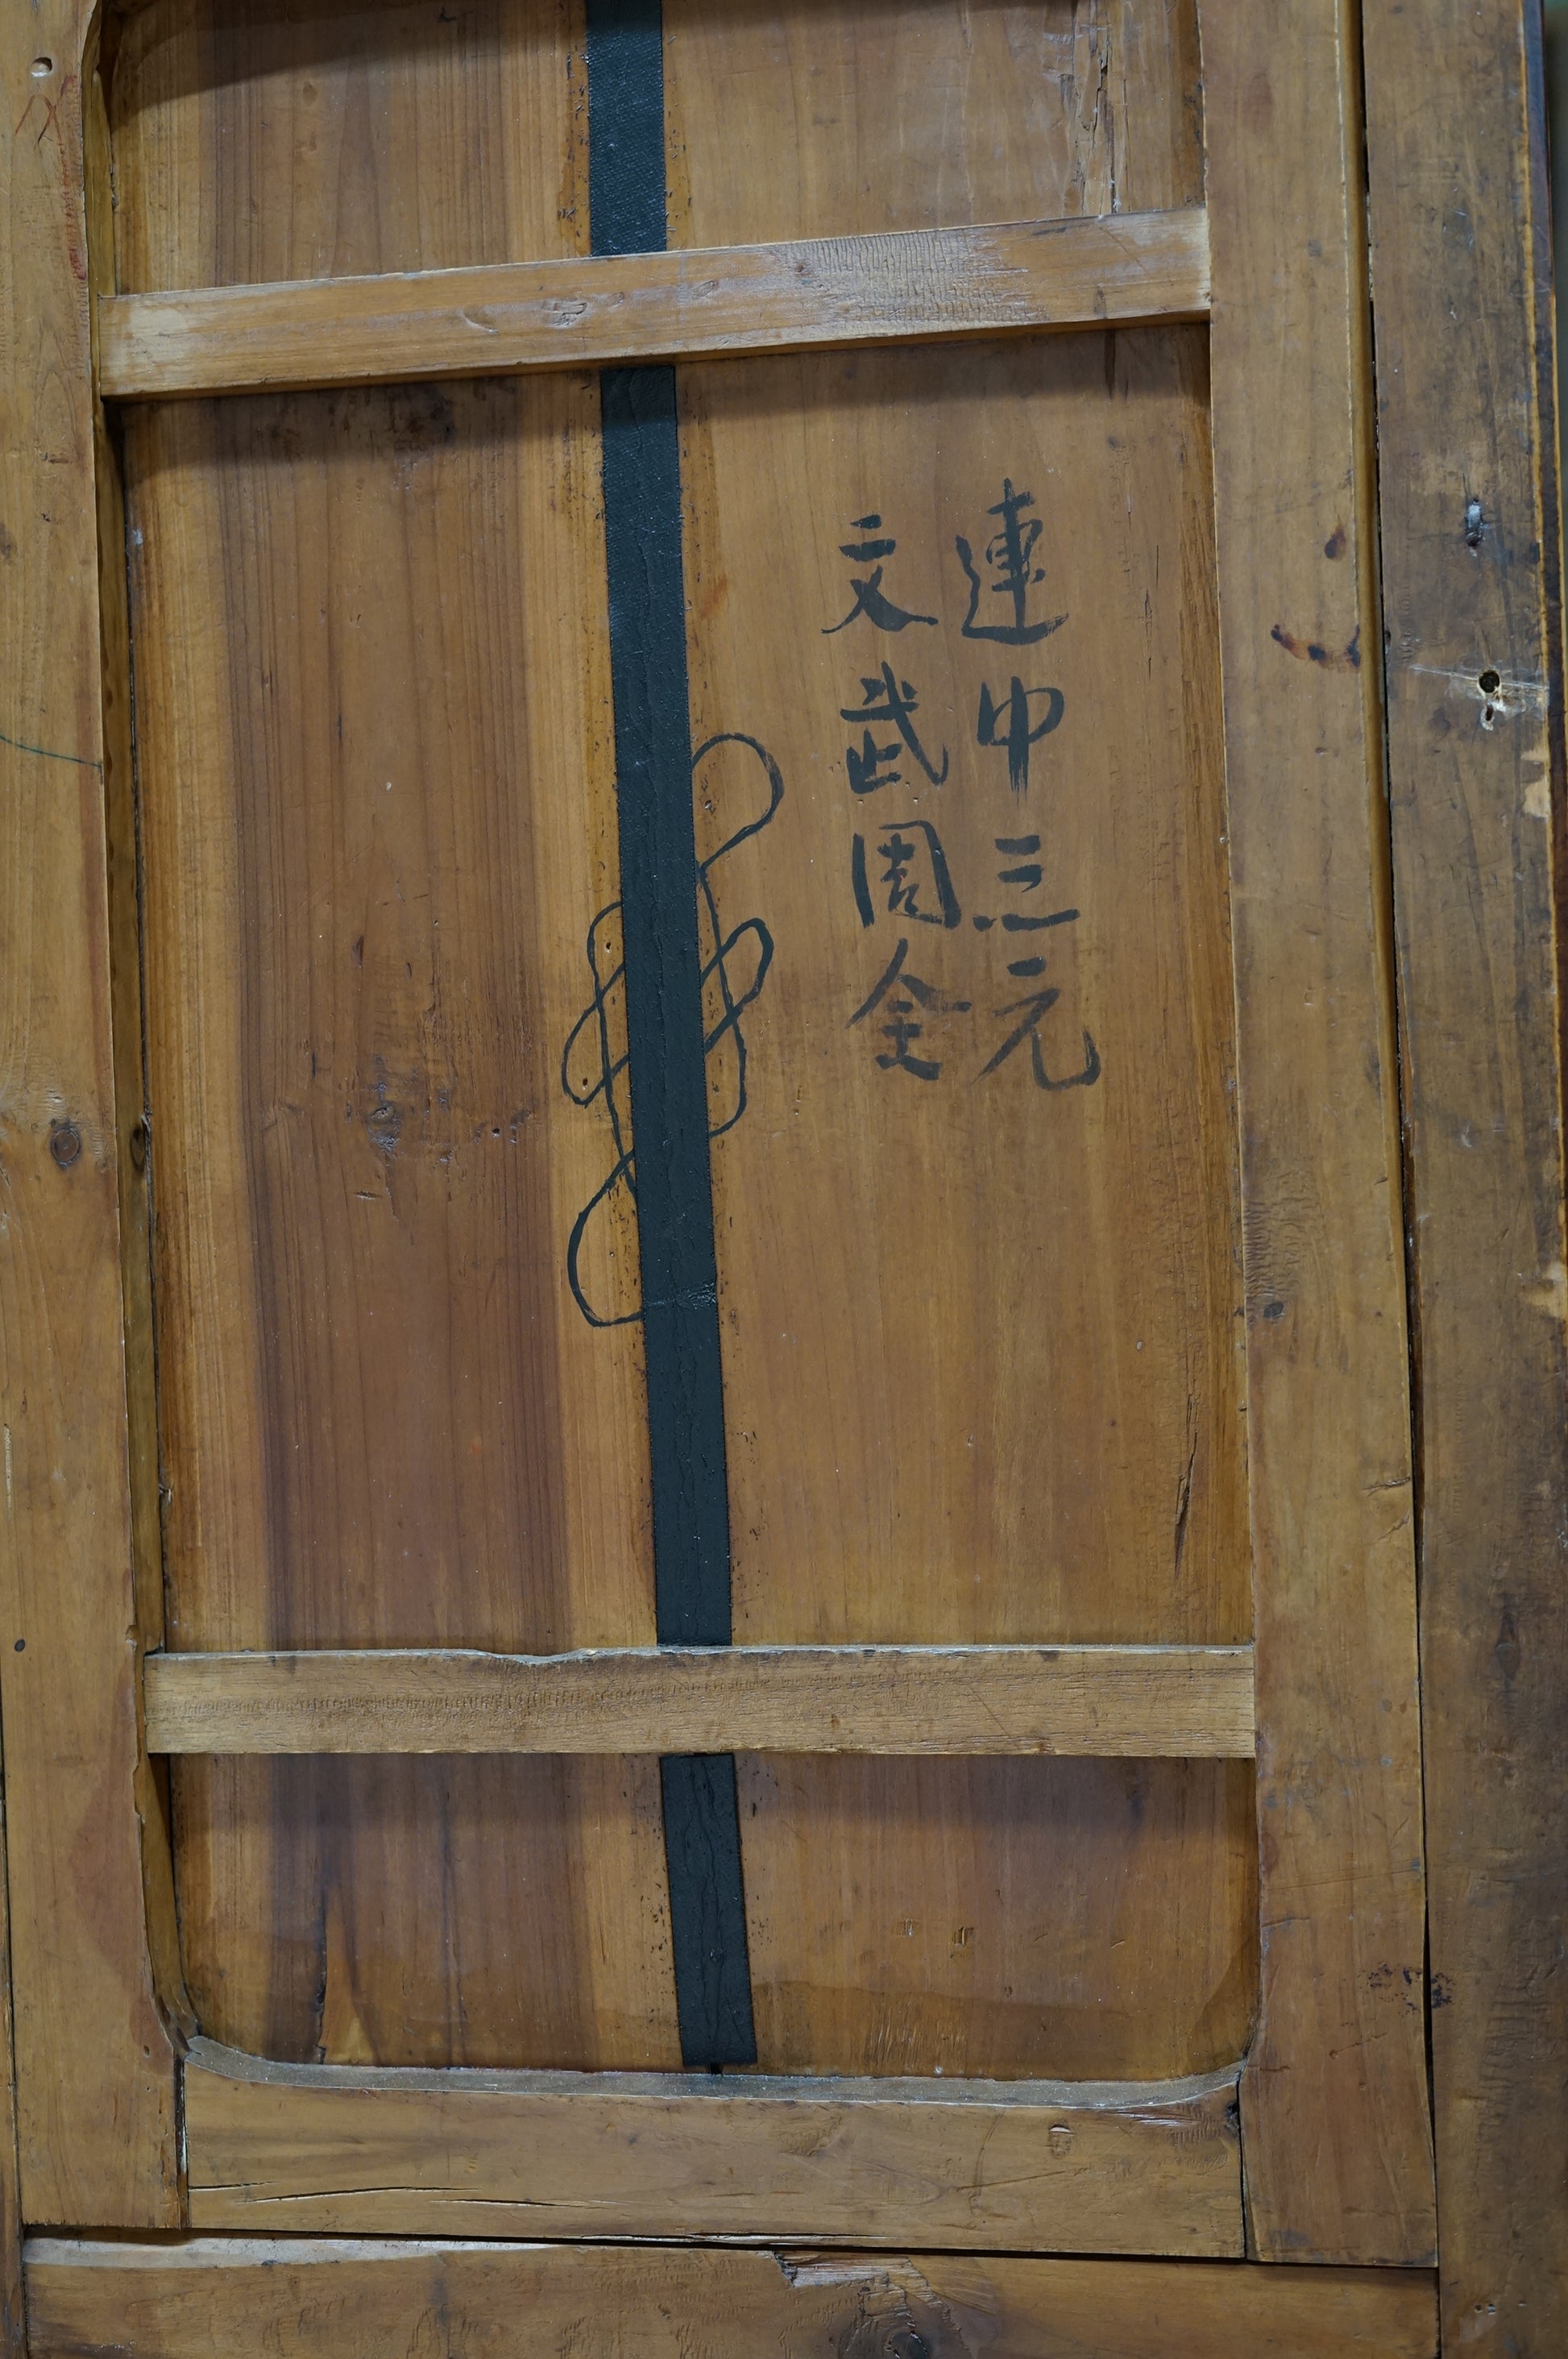 連中三元
文武周全